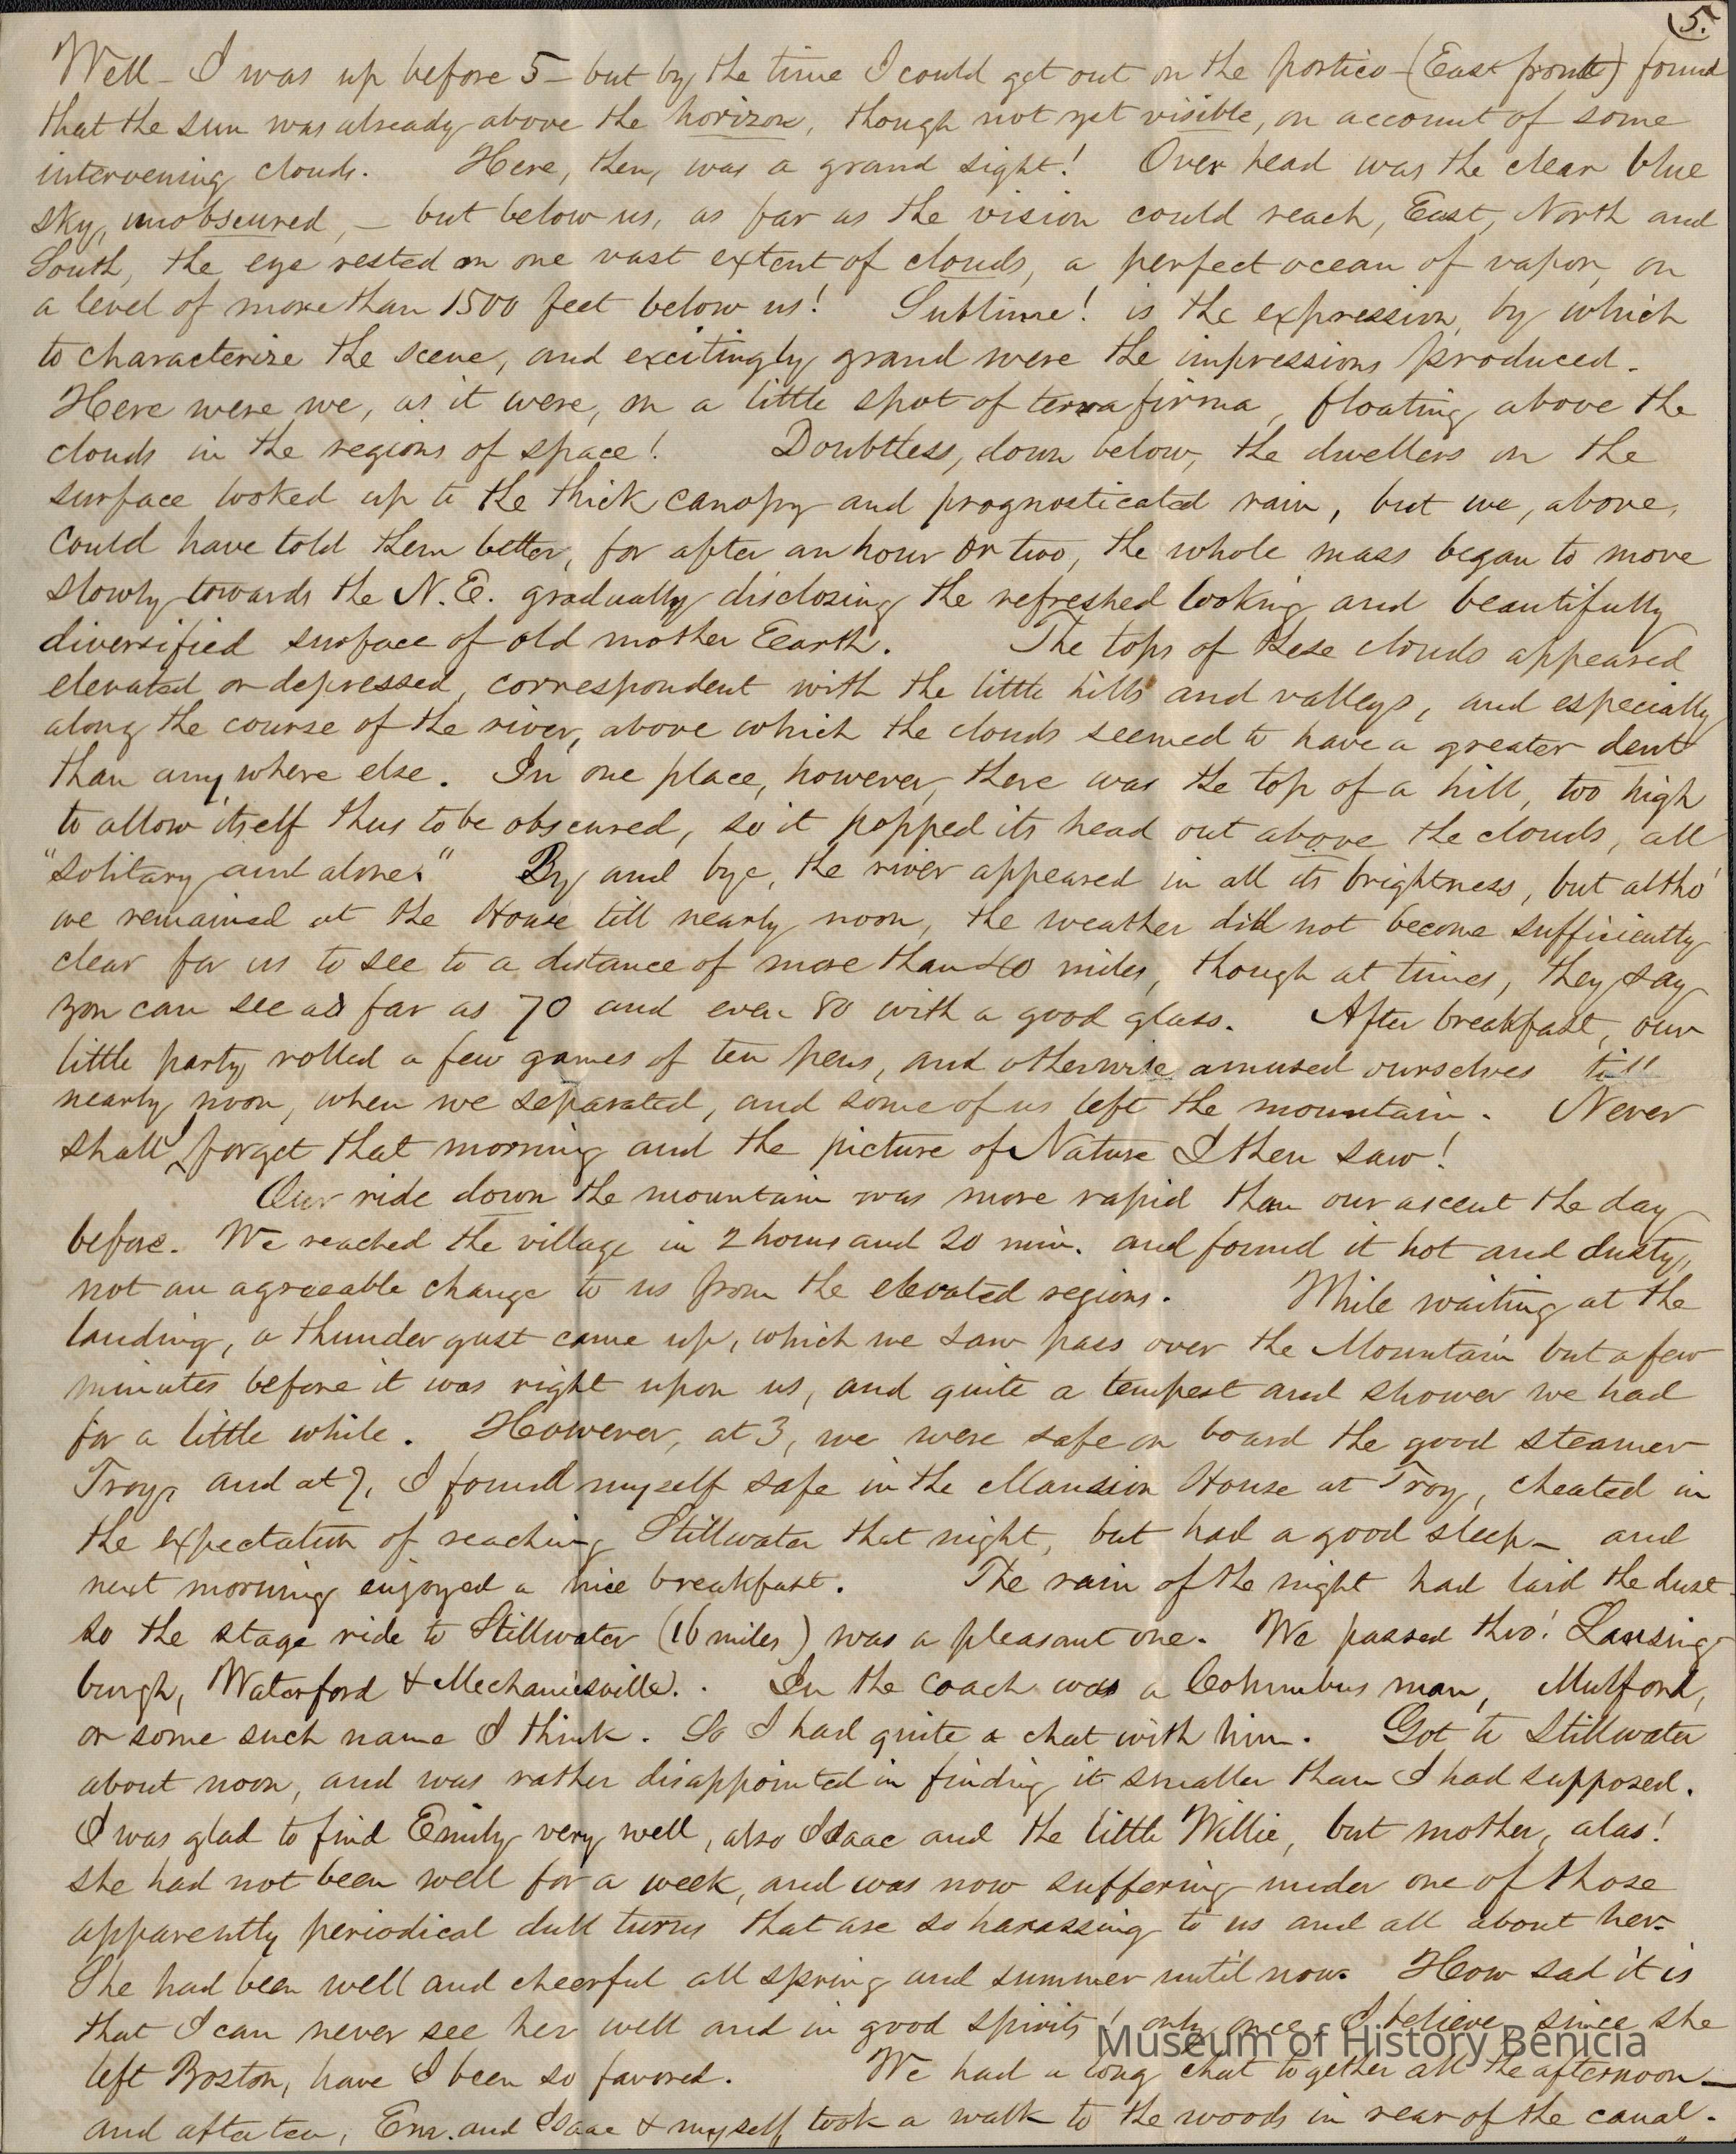 5.
Well - I was up before 5 - but by the time I could get out on the portico - (East front) found
that the sun was already above the horizon, though not yet visible, on account of some
intervening clouds. Here, then, was a grand sight! Over head was the clear blue
sky, unobscured, - but below us, as far as the vision could reach, East, North and
South, the eye rested on one vast extent of clouds, a perfect ocean of vapor, on
a level of more than 1500 feet below us! Sublime! is the expression, by which
to characterize the scene, and excitingly grand were the impressions produced.
Here were we, as it were, on a little spot of terra firma, floating above the
clouds in the regions of space! Doubtless, down below, the dwellers on the
surface looked up to the thick canopy and prognosticated rain, but we, above,
could have told them better, for after an hour or two, the whole mass began to move
slowly towards the N.E. gradually disclosing the refreshed looking and beautifully
diversified surface of old mother Earth. The tops of these clouds appeared
elevated or depressed, correspondent with the little hills and valleys, and especially
along the course of the river, above which the clouds seemed to have a greater dent
than any where else. In one place, however, there was the top of a hill, too high
to allow itself thus to be obscured, so it popped its head out above the clouds, all
"solitary and alone." By and bye, the river appeared in all its brightness, but altho'
we remained at the House till nearly noon, the weather did not become sufficiently
clear for us to see to a distance of more than 40 miles, though at times, they say
you can see as far as 70 and even 80 with a good glass. After breakfast, our
little party rolled a few games of ten pens, and otherwise amused ourselves till
nearly noon, when we separated, and some of us left the mountain. Never
shall I forget that morning and the picture of Nature I then saw!
Our ride down the mountain was more rapid than our ascent the day
before. We reached the village in 2 hours and 20 min. and found it hot and dusty,
not an agreeable change to us from the elevated regions. While waiting at the
landing, a thunder gust came up, which we saw pass over the Mountain but a few
minutes before it was right upon us, and quite a tempest and shower we had
for a little while. However, at 3, we were safe on board the good steamer
Troy, and at 7, I found myself safe in the Mansion House at Troy, cheated in
the expectation of reaching Stillwater that night, but had a good sleep - and
next morning enjoyed a nice breakfast. The rain of the night had laid the dust
so the stage ride to Stillwater (16 miles) was a pleasant one. We passed thro' Lansing-
burgh, Waterford & Mechanicsville. In the coach was a Columbus man, Mulford,
or some such name I think. So I had quite a chat with him. Got to Stillwater
about noon, and was rather disappointed in finding it smaller than I had supposed.
I was glad to find Emily very well, also Isaac and the little Willie, but mother, alas!
she had not been well for a week, and was now suffering under one of those
apparently periodical dull turns that are so harassing to us and all about her.
She had been well and cheerful all spring and summer until now. How sad it is
that I can never see her well and in good spirits! only once, I believe, since she
left Boston, have I been so favored. We had a long chat together all the afternoon -
and after tea, Em. and Isaac & myself took a walk to the woods in rear of the canal.
Museum of History Benicia